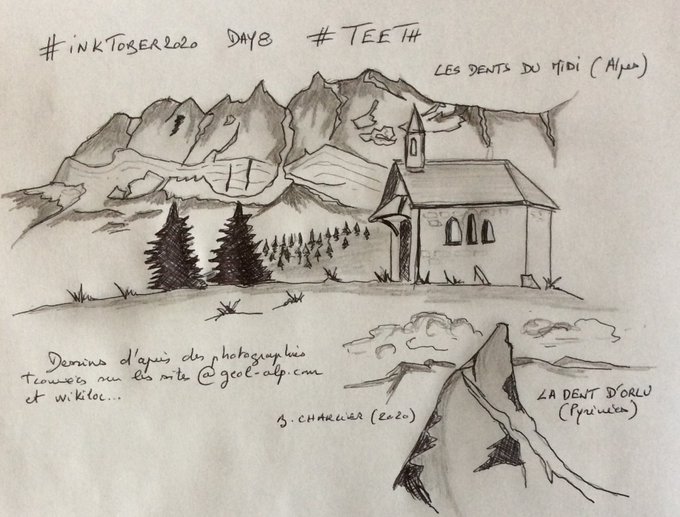 #INKTOBER2020 DAY 8 #TEETH
LES DENTS DU MIDI (Alpes)
Dessins d'après des photographies
trouvées sur les sites @geol-alp.com
et wikiloc...
B. CHARLIER (2020)
LA DENT D'ORLU
(Pyrénées)